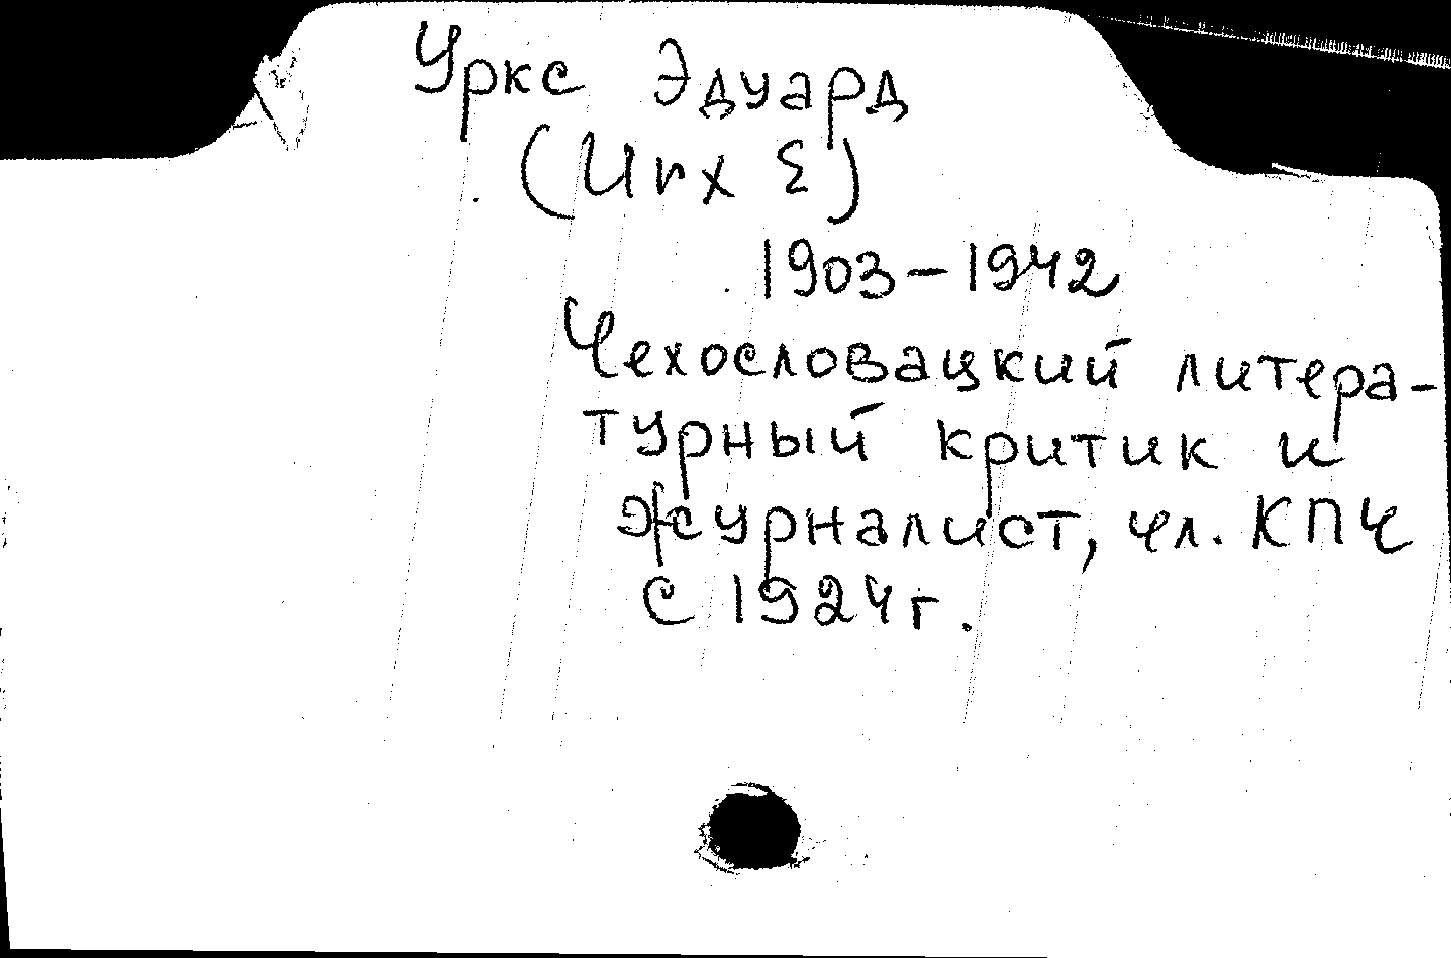 Уркс Эдуард
(Urx E)
1903–1942
Чехословацкий литера-
турный критик и
журналист, чл. КПЧ
с 1924г.